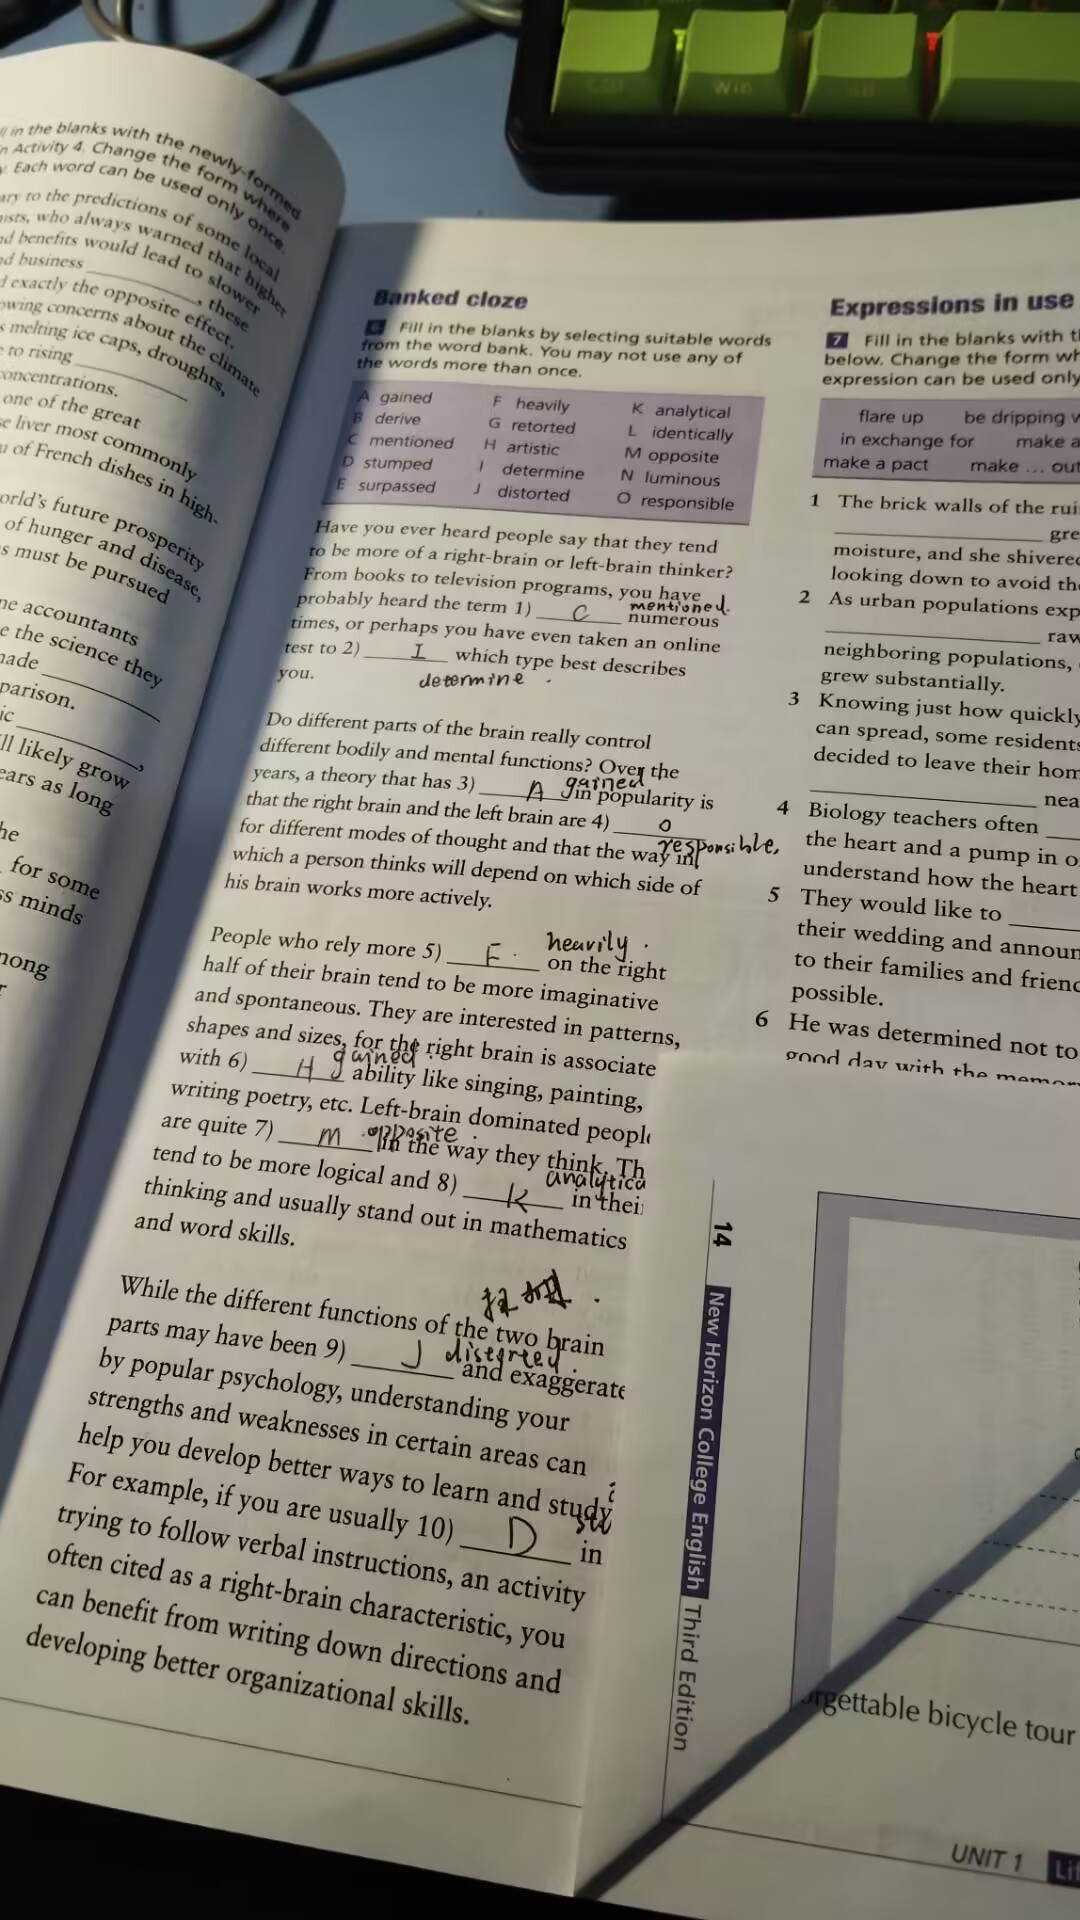 ll in the blanks with the newly-formed
n Activity 4. Change the form where
y. Each word can be used only once.
ary to the predictions of some local
ists, who always warned that higher
nd benefits would lead to slower
d business
, these
d exactly the opposite effect.
owing concerns about the climate
s melting ice caps, droughts,
e to rising
concentrations.
one of the great
se liver most commonly
u of French dishes in high-
orld's future prosperity
of hunger and disease,
s must be pursued
ne accountants
e the science they
made
parison.
ic
ll likely grow
ears as long
he
for some
ss minds
mong
r
Banked cloze
6 Fill in the blanks by selecting suitable words
from the word bank. You may not use any of
the words more than once.
A gained F heavily K analytical
B derive G retorted L identically
C mentioned H artistic M opposite
D stumped I determine N luminous
E surpassed J distorted O responsible
Have you ever heard people say that they tend
to be more of a right-brain or left-brain thinker?
From books to television programs, you have
mentioned.
probably heard the term 1) C numerous
times, or perhaps you have even taken an online
test to 2) I which type best describes
you. determine.
Do different parts of the brain really control
different bodily and mental functions? Over the
gained
years, a theory that has 3) A in popularity is
that the right brain and the left brain are 4) O
responsible,
for different modes of thought and that the way in
which a person thinks will depend on which side of
his brain works more actively.
heavily.
People who rely more 5) F. on the right
half of their brain tend to be more imaginative
and spontaneous. They are interested in patterns,
shapes and sizes, for the right brain is associate
gained.
with 6) H ability like singing, painting,
writing poetry, etc. Left-brain dominated people
opposite.
are quite 7) M in the way they think. Th
analytica
tend to be more logical and 8) K in thei
thinking and usually stand out in mathematics
and word skills.
While the different functions of the two brain
disegreed.
parts may have been 9) J and exaggerate
by popular psychology, understanding your
strengths and weaknesses in certain areas can
help you develop better ways to learn and study
For example, if you are usually 10) D in
trying to follow verbal instructions, an activity
often cited as a right-brain characteristic, you
can benefit from writing down directions and
developing better organizational skills.
Expressions in use
7 Fill in the blanks with t
below. Change the form wh
expression can be used only
flare up be dripping w
in exchange for make a
make a pact make ... out
1 The brick walls of the rui
gre
moisture, and she shivered
looking down to avoid the
2 As urban populations exp
raw
neighboring populations,
grew substantially.
3 Knowing just how quickly
can spread, some residents
decided to leave their hom
nea
4 Biology teachers often
the heart and a pump in o
understand how the heart
5 They would like to
their wedding and announ
to their families and friend
possible.
6 He was determined not to
good day with the memor
14 New Horizon College English Third Edition
orgettable bicycle tour
UNIT 1 Li
Win